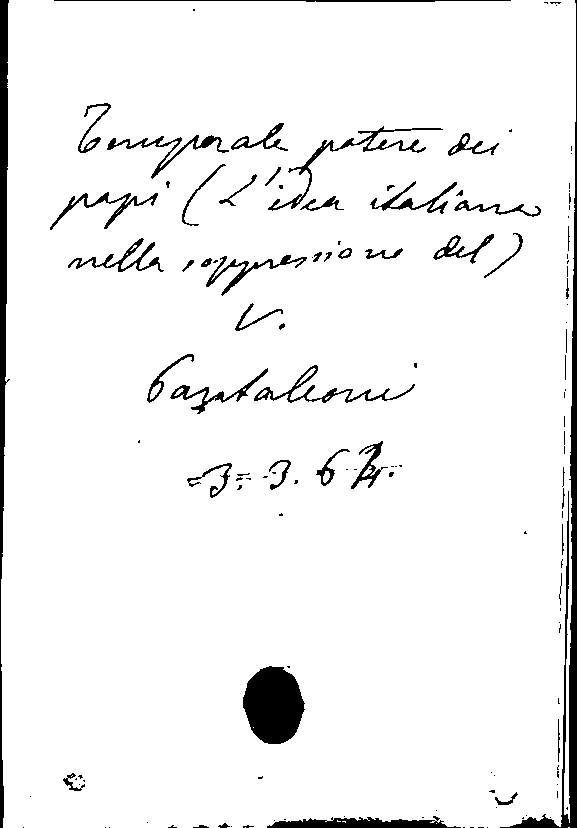 Temporale potere dei
papi (L'idea italiana
nella soppressione del)
V.
Pantaleoni
3. 3. 6